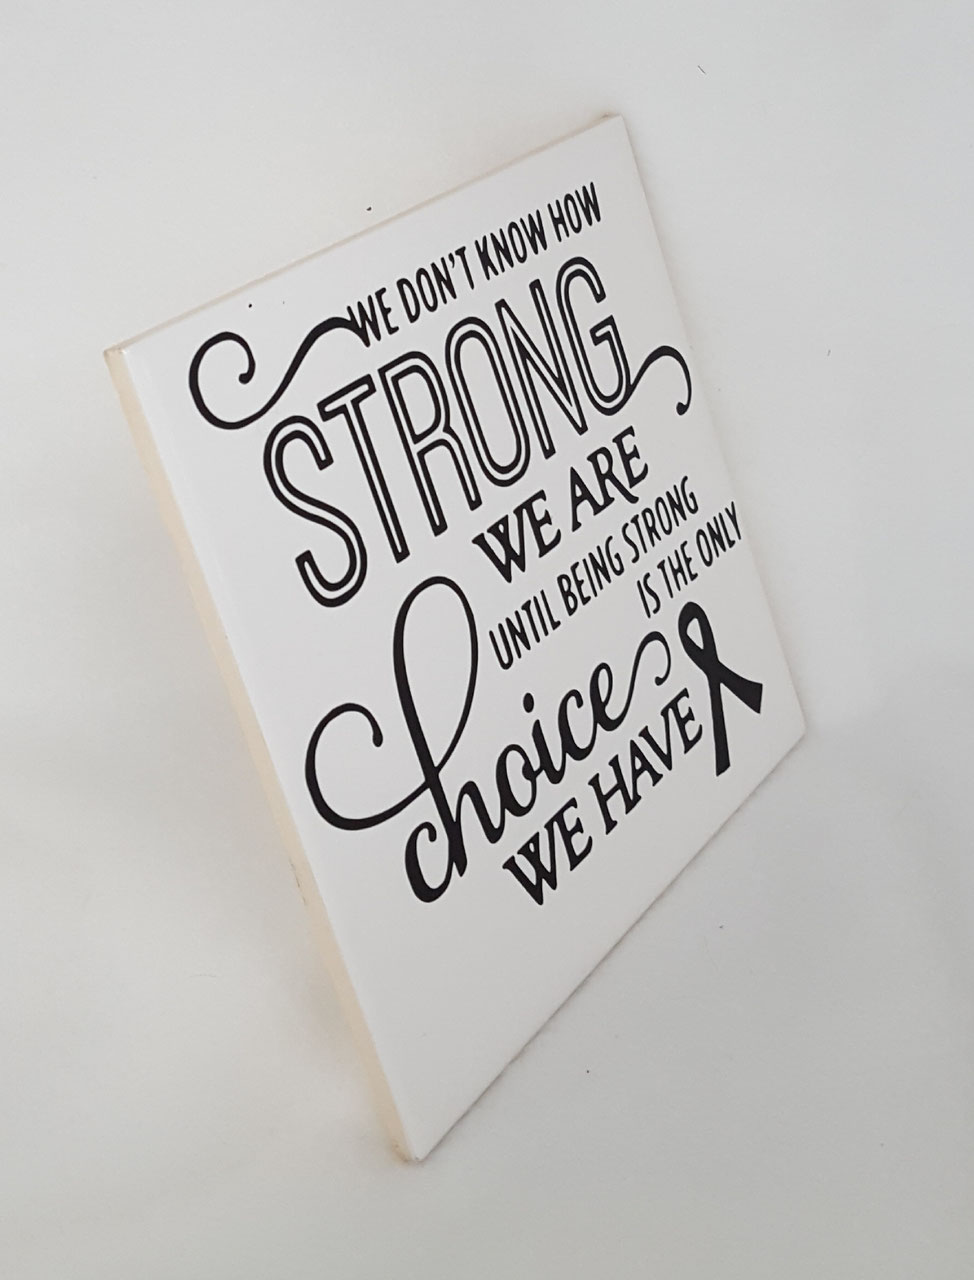 WE DON'T KNOW HOW
STRONG
WE ARE
UNTIL BEING STRONG
IS THE ONLY
choice
WE HAVE